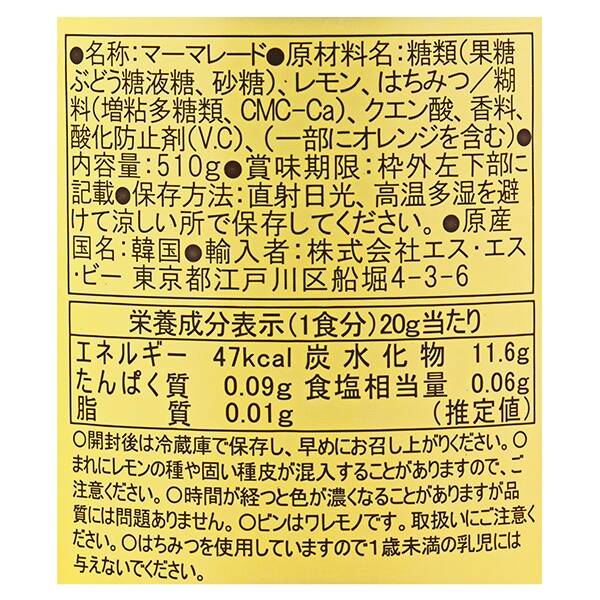 ●名称:マーマレード●原材料名:糖類(果糖
ぶどう糖液糖、砂糖)、レモン、はちみつ/糊
料(増粘多糖類、CMC-Ca)、クエン酸、香料、
酸化防止剤(V.C)、(一部にオレンジを含む)●
内容量:510g●賞味期限:枠外左下部に
記載●保存方法:直射日光、高温多湿を避
けて涼しい所で保存してください。●原産
国名:韓国●輸入者:株式会社エス・エス
・ビー 東京都江戸川区船堀4-3-6
栄養成分表示(1食分)20g当たり
エネルギー 47kcal 炭水化物 11.6g
たんぱく質 0.09g 食塩相当量 0.06g
脂質 0.01g (推定値)
○開封後は冷蔵庫で保存し、早めにお召し上がりください。○
まれにレモンの種や固い種皮が混入することがありますので、ご
注意ください。○時間が経つと色が濃くなることがありますが品
質には問題ありません。○ビンはワレモノです。取扱いにご注意く
ださい。○はちみつを使用していますので1歳未満の乳児には
与えないでください。